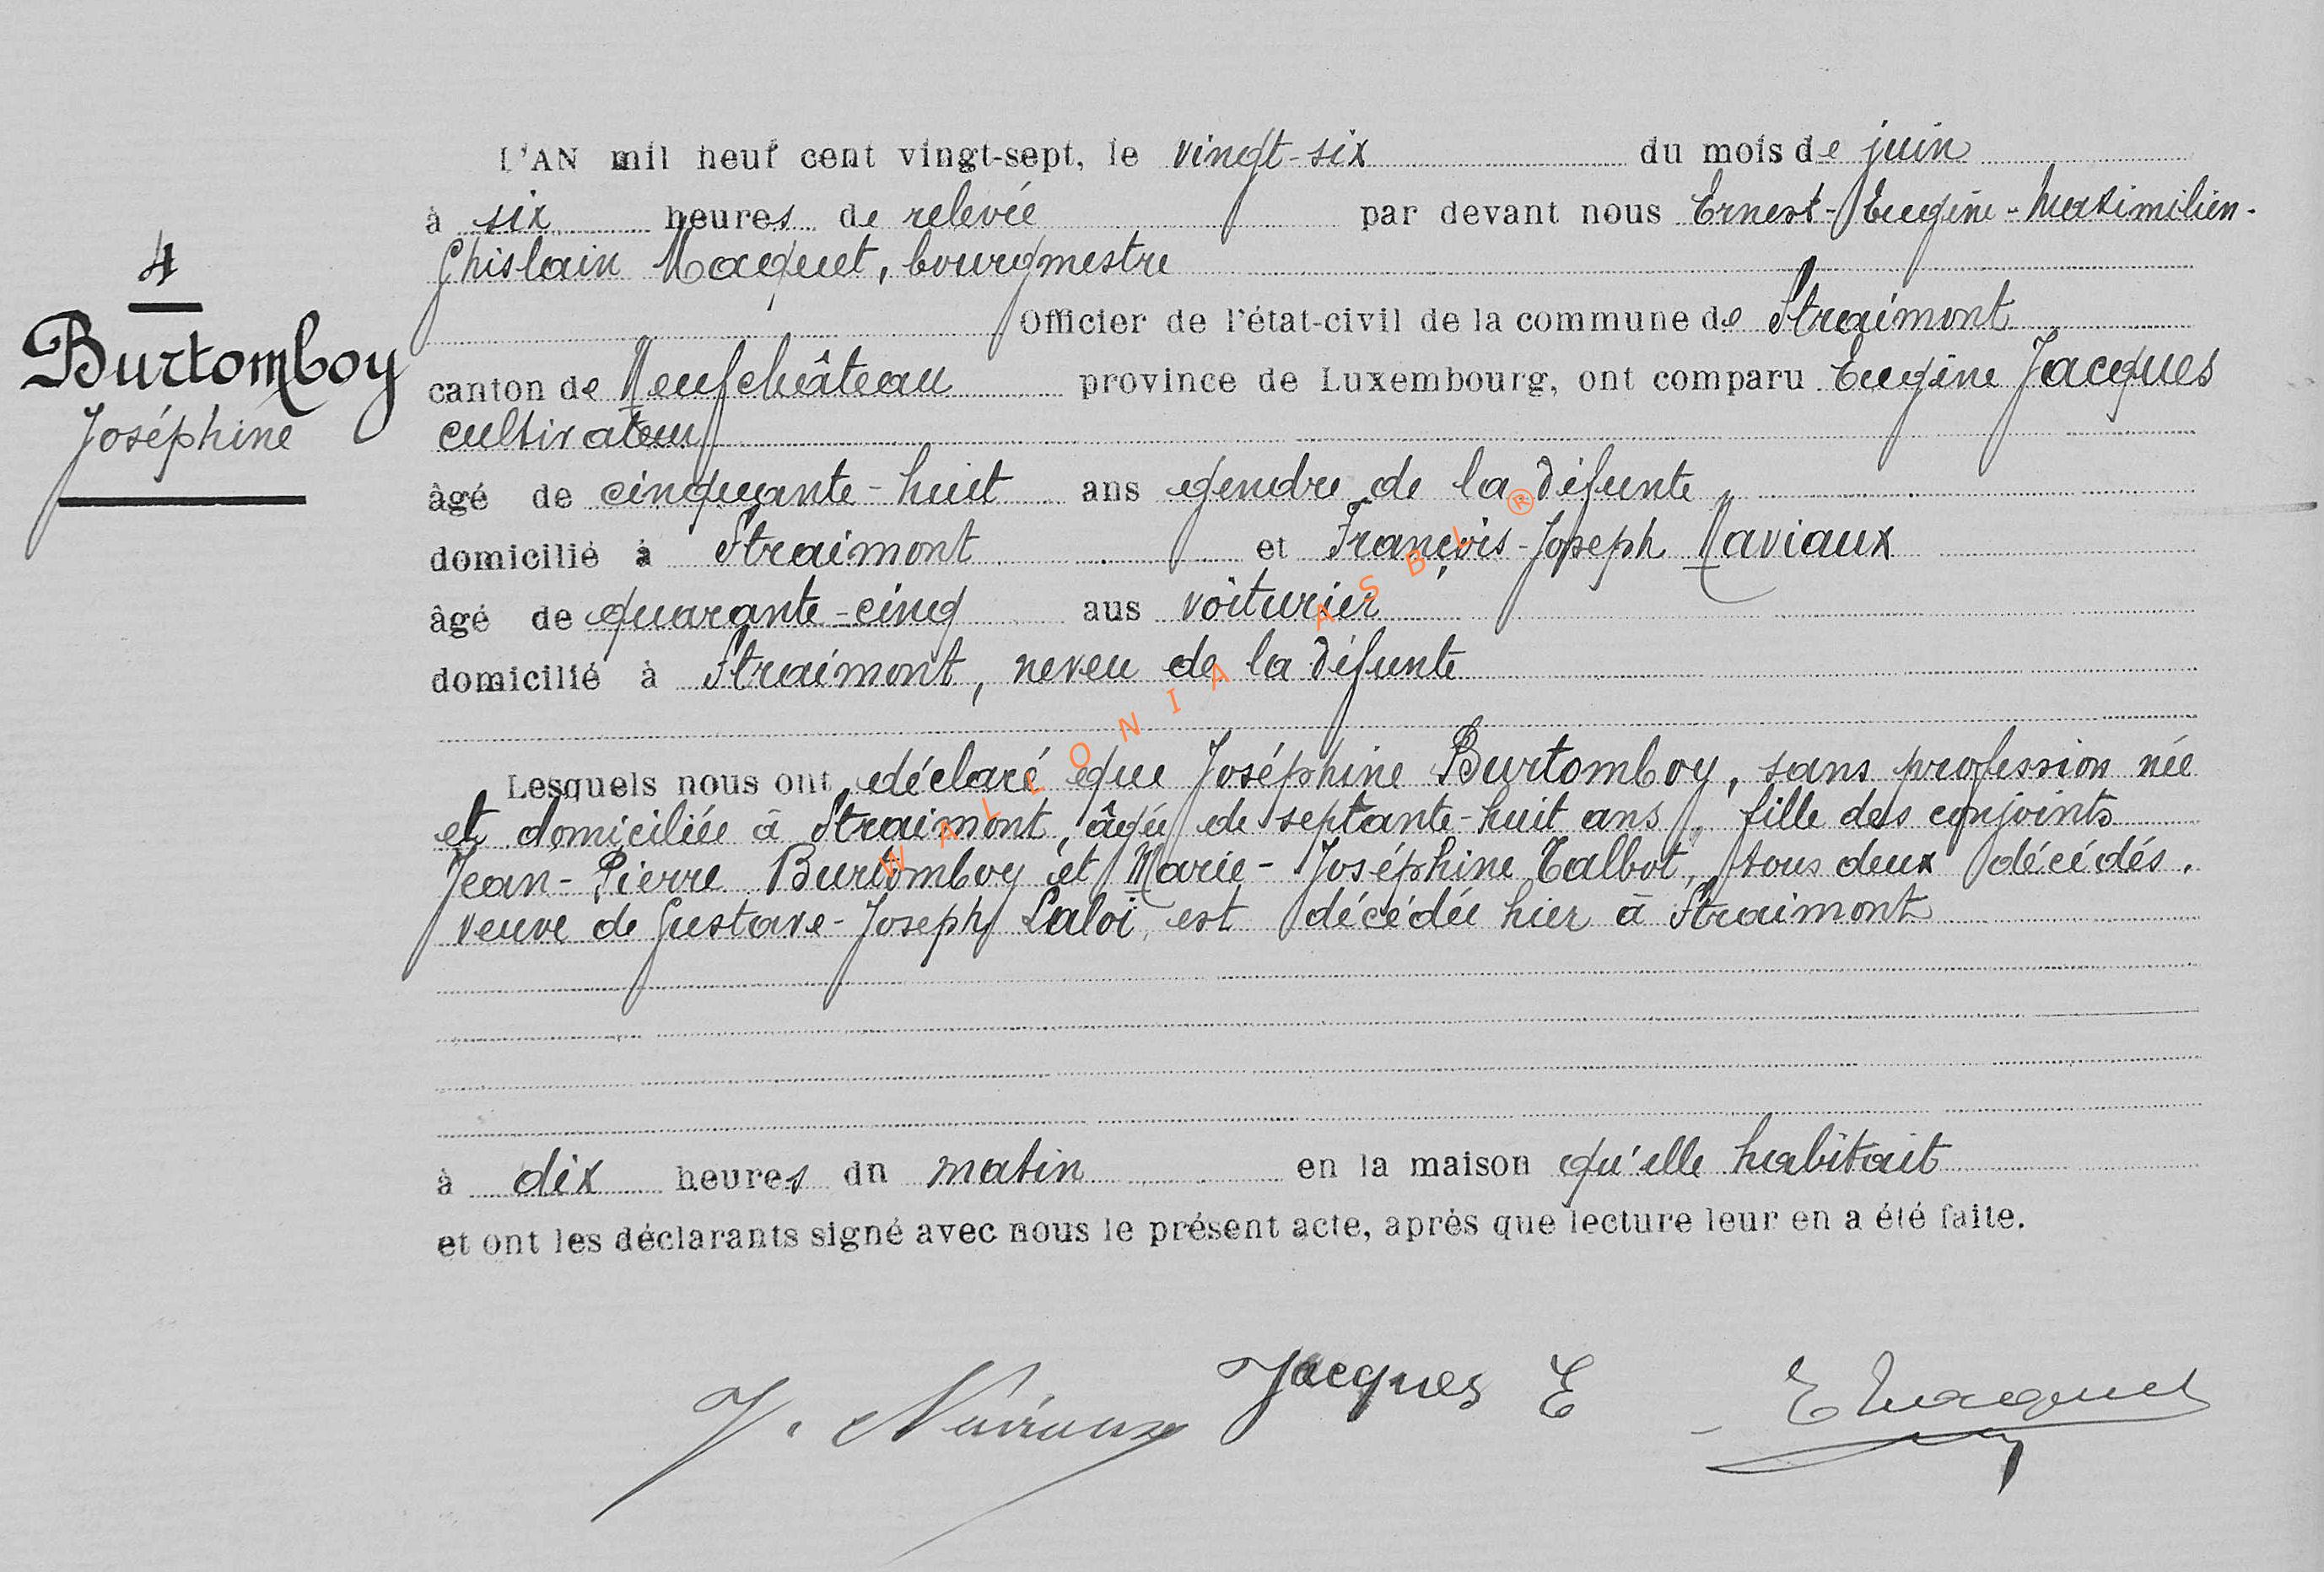 L'AN mil neuf cent vingt-sept, le vingt-six du mois de juin
à six heures de relevée par devant nous Ernest-Eugène-Maximilien-
Ghislain Macquet, bourgmestre
Officier de l'état-civil de la commune de Straimont
canton de Neufchâteau province de Luxembourg, ont comparu Eugène Jacques
cultivateur
âgé de cinquante-huit ans gendre de la défunte
domicilié à Straimont et François-Joseph Naviaux
âgé de quarante-cinq aus voiturier
domicilié à Straimont, neveu de la défunte
Lesquels nous ont déclaré que Joséphine Burtomboy, sans profession née
et domiciliée à Straimont, âgée de septante-huit ans, fille des conjoints
Jean-Pierre Burtomboy et Marie-Joséphine Talbot, tous deux décédés.
veuve de Gustave-Joseph Laloi, est décédée hier à Straimont
à dix heures du matin en la maison qu'elle habitait
et ont les déclarants signé avec nous le présent acte, après que lecture leur en a été faite.
4
Burtomboy
Joséphine
J. Naviaux Jacques E E Macquet
WALLONIA ASBL ®